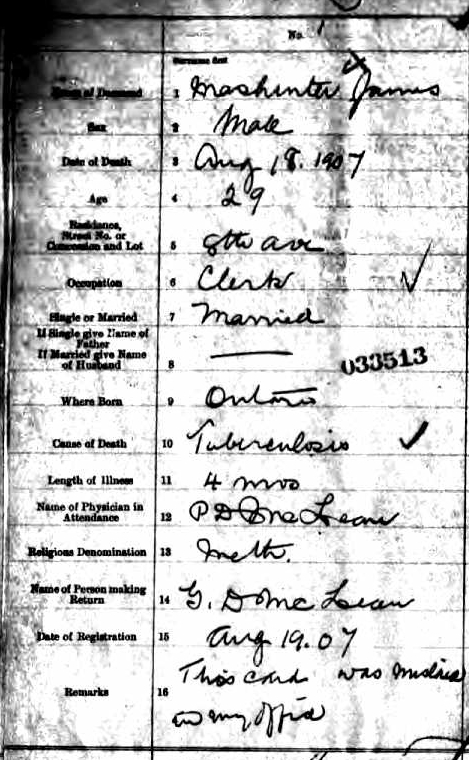 No. 1
Surname first
Name of Deceased 1 Mashinter James
Sex 2 Male
Date of Death 3 Aug 18. 1907
Age 4 29
Residence,
Street No. or
Concession and Lot 5 8th ave
Occupation 6 Clerk
Single or Married 7 Married
If Single give Name of
Father
If Married give Name
of Husband 8 —
033513
Where Born 9 Ontario
Cause of Death 10 Tuberculosis
Length of Illness 11 4 mos
Name of Physician in
Attendance 12 P D McLean
Religious Denomination 13 Meth.
Name of Person making
Return 14 G. D McLean
Date of Registration 15 Aug 19. 07
This card was mislaid
Remarks 16
in my office